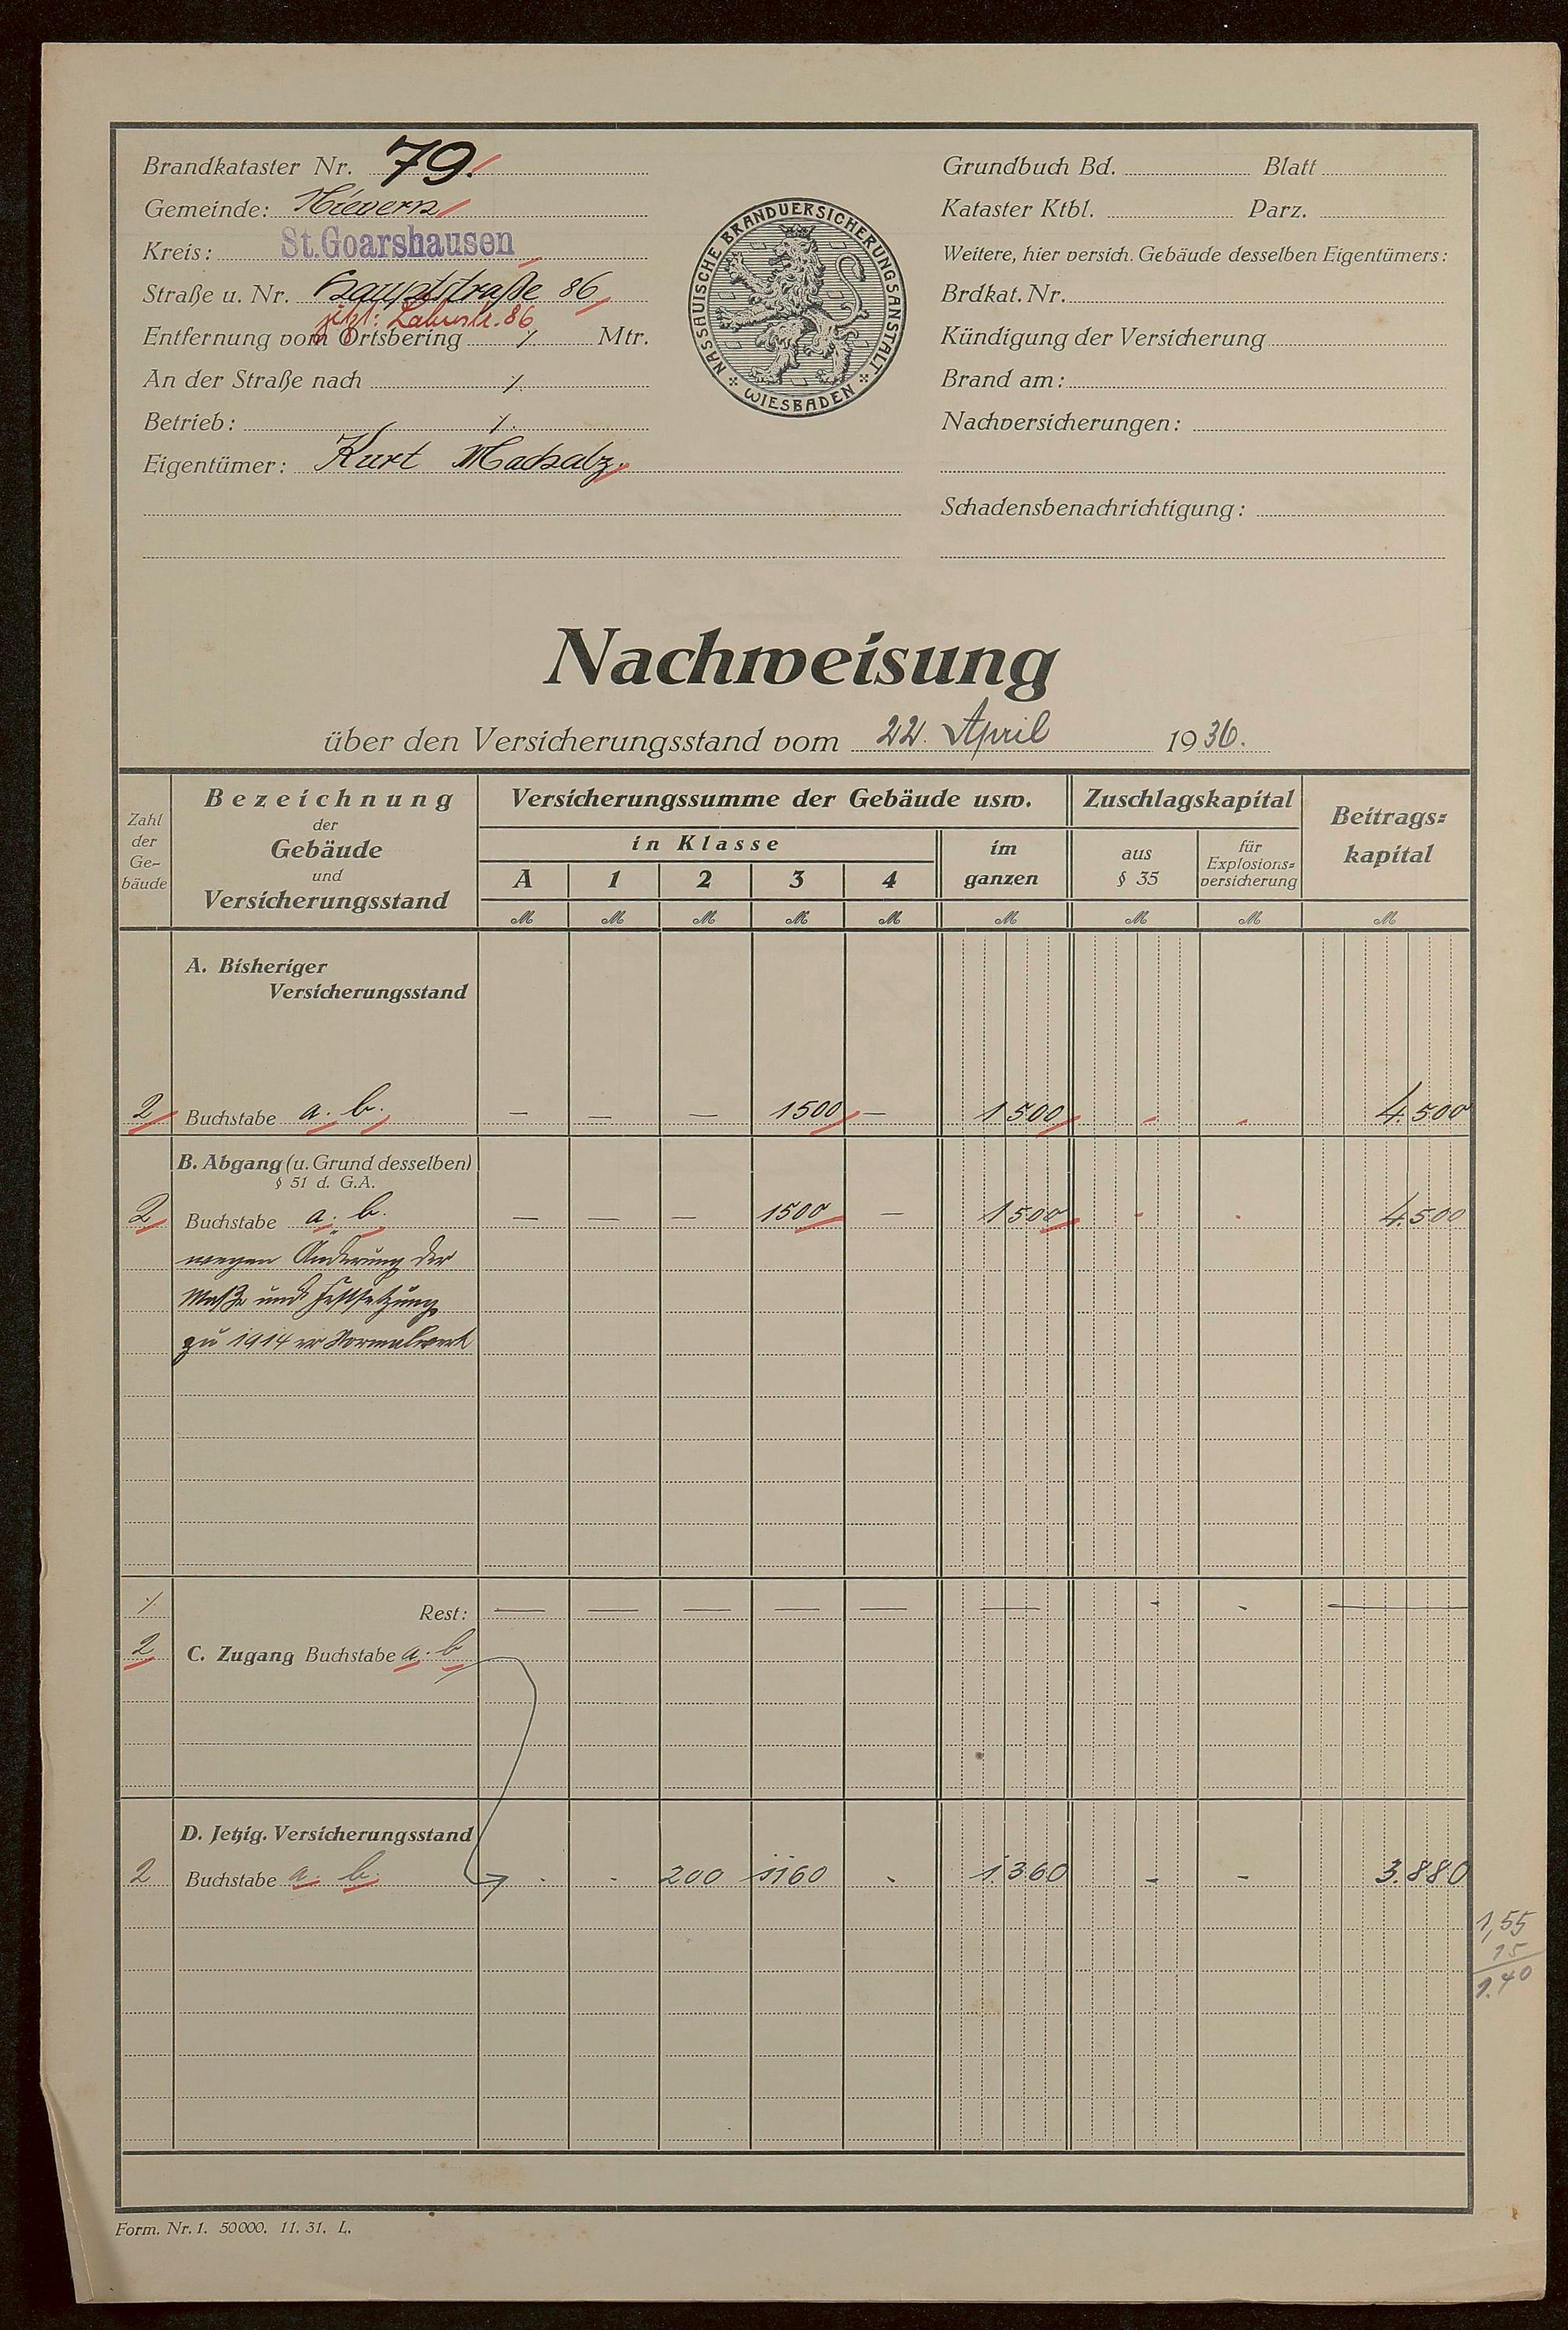 Brandkataster Nr. 79.
Gemeinde: Nievern
Kreis: St. Goarshausen
Straße u. Nr. Hauptstraße 86
jetzt: Lahnstr. 86
Entfernung vom Ortsbering ⁒ Mtr.
An der Straße nach ⁒
Betrieb: ⁒
Eigentümer: Kurt Machalz.
NASSAUISCHE BRANDVERSICHERUNGSANSTALT
WIESBADEN
Grundbuch Bd. Blatt
Kataster Ktbl. Parz.
Weitere, hier versich. Gebäude desselben Eigentümers:
Brdkat. Nr.
Kündigung der Versicherung
Brand am:
Nachversicherungen:
Schadensbenachrichtigung:
Nachweisung
über den Versicherungsstand vom 22. April 1936.
Zahl der Ge-bäude
Bezeichnung der Gebäude und Versicherungsstand
Versicherungssumme der Gebäude usw.
in Klasse
A 1 2 3 4
im ganzen
Zuschlagskapital
aus § 35
für Explosions-versicherung
Beitrags-kapital
M M M M M M M M M
A. Bisheriger
Versicherungsstand
2 Buchstabe a. b. — — — 1500 — 1500 - - 4.500
B. Abgang (u. Grund desselben)
§ 51 d. G.A.
2 Buchstabe a. b. — — — 1500 — 1500 - - 4.500
wegen Änderung der
Maße und Festsetzung
zu 1914er Normalwert
⁒ Rest: — — — — — — - - —
2 C. Zugang Buchstabe a. b
D. Jetzig. Versicherungsstand
2 Buchstabe a. b. - - 200 1160 - 1.360 - - 3.880
1,55
15
1.40
Form. Nr. 1. 50000. 11. 31. L.